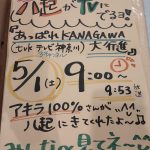 八起が TVに
でるヨ!
あっぱれKANAGAWA
(tvk テレビ神奈川) 大行進
5/1(土) 9:00〜
9:53
アキラ100%さんが
八起にきてくれたよ〜
みんな〜見てネ〜